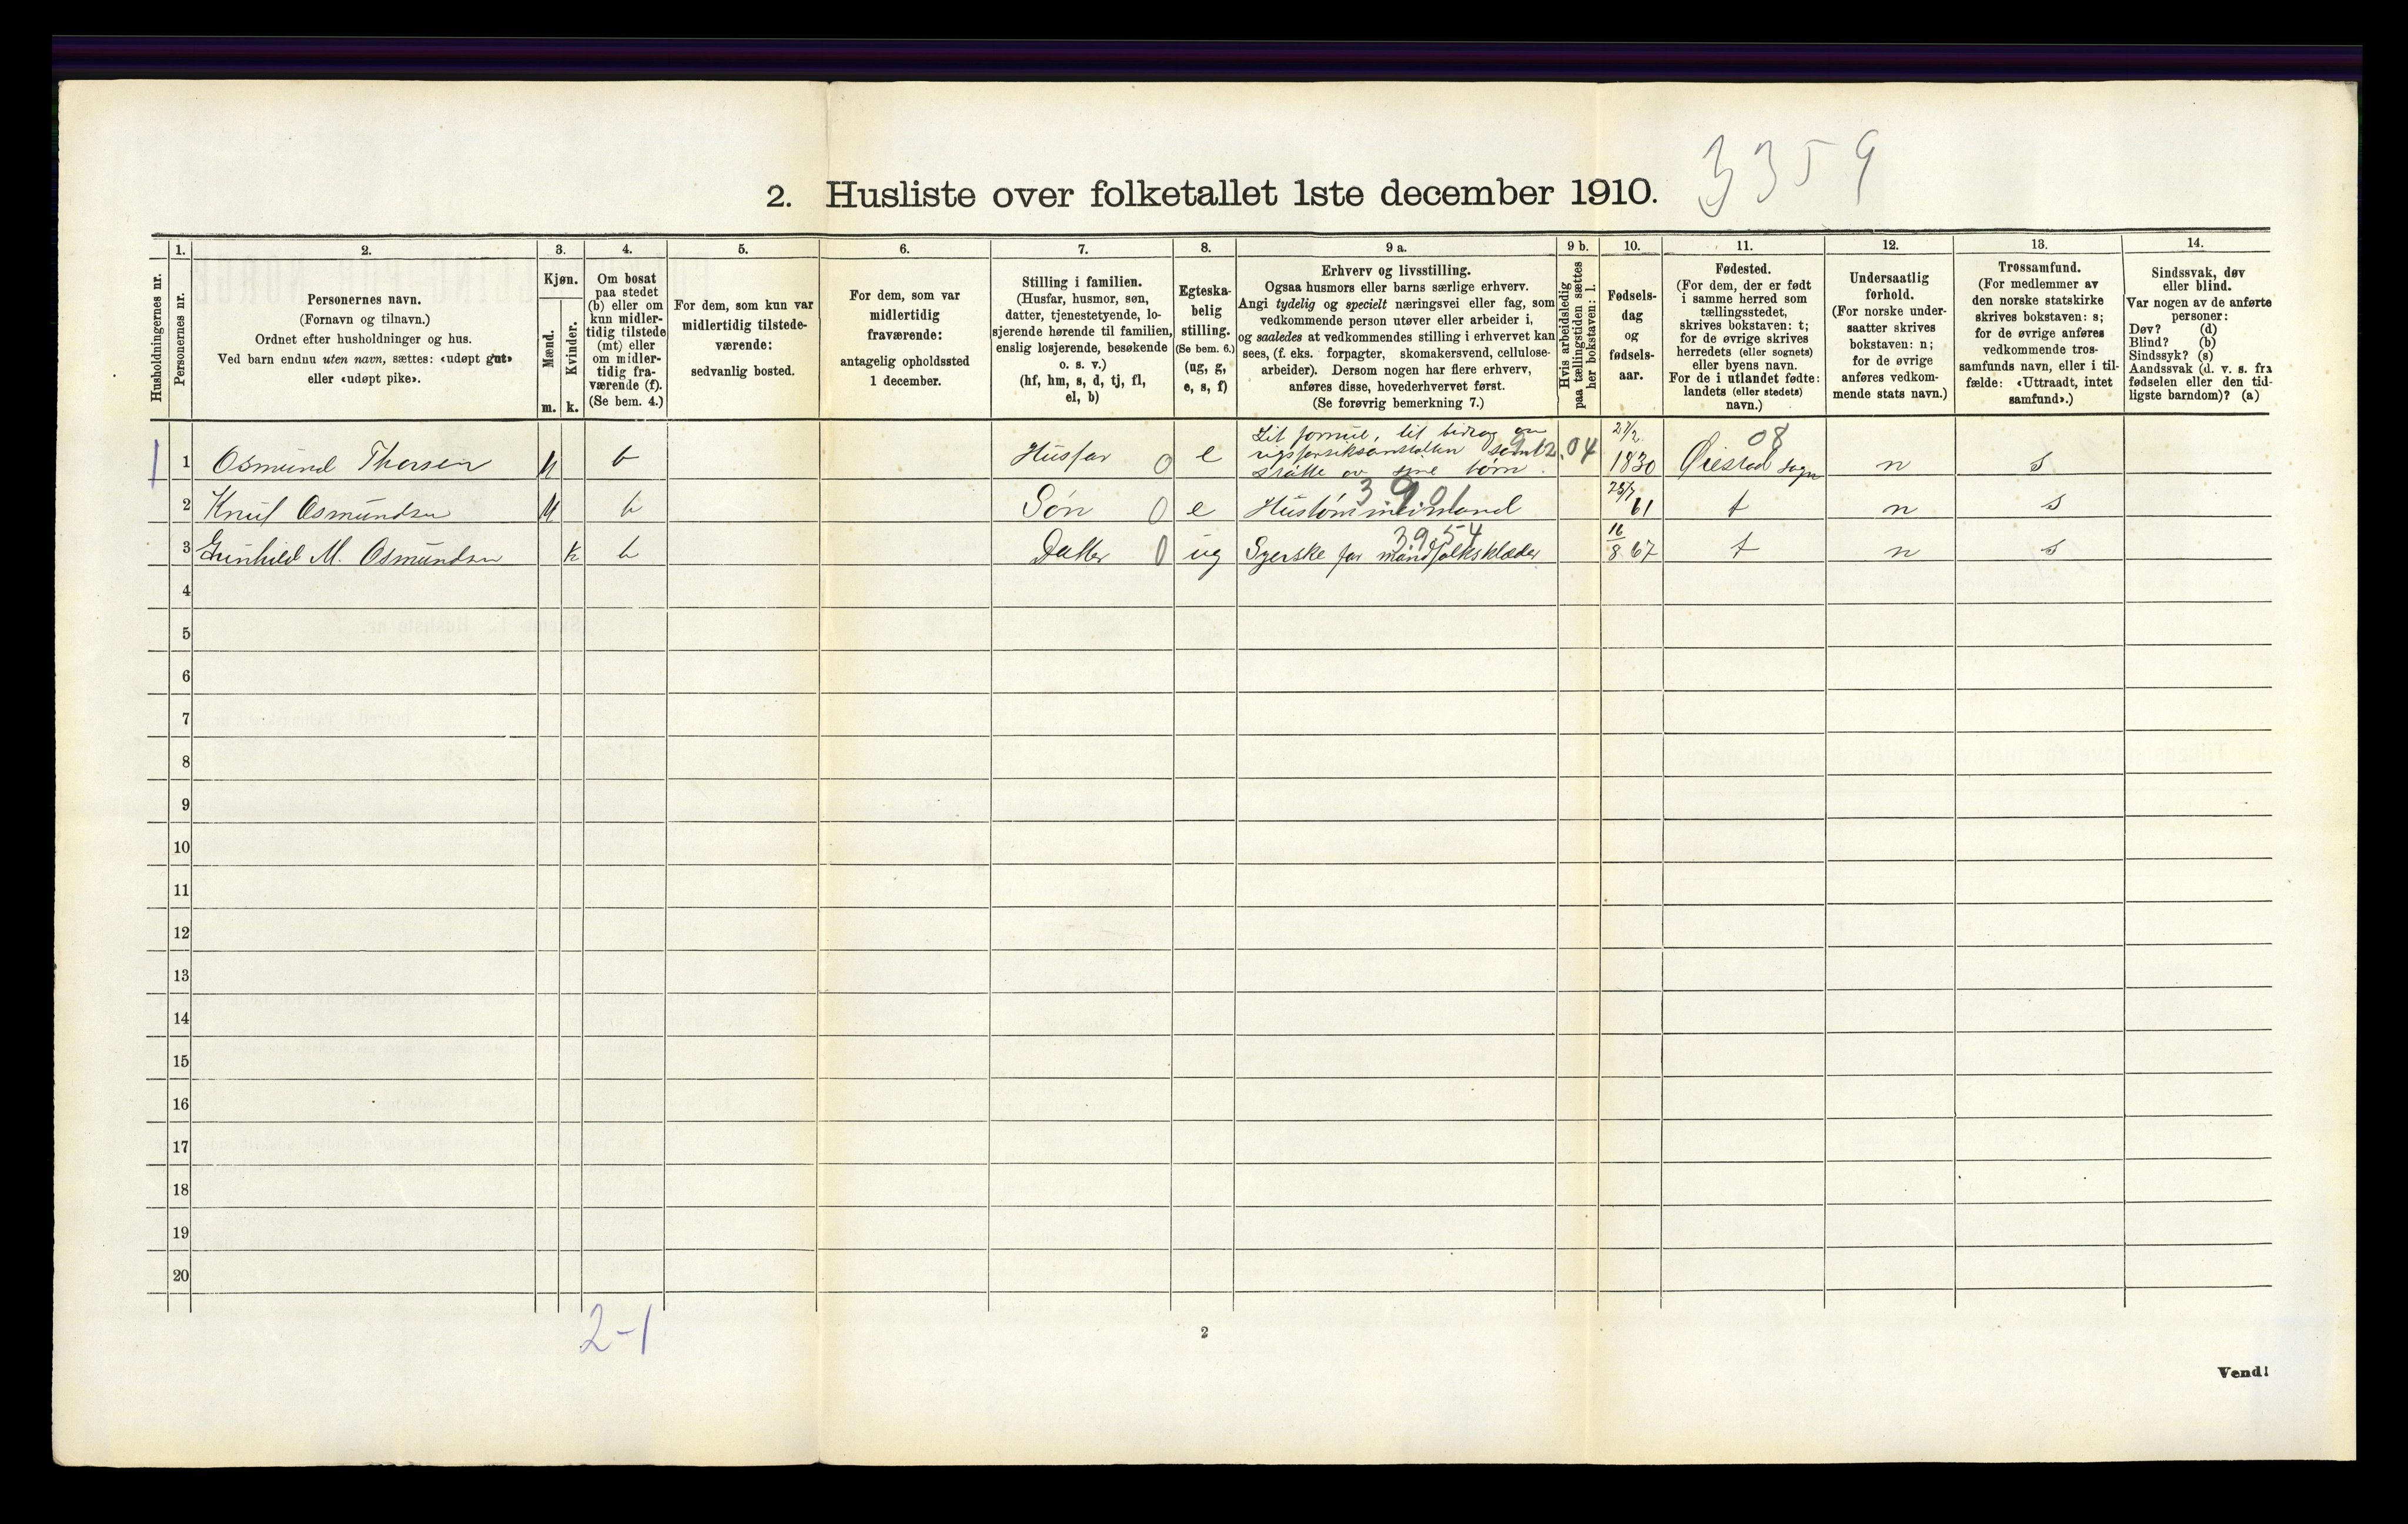 3359
2. Husliste over folketallet 1ste december 1910.
Husholdningernes nr.
1.
Personernes nr.
2.
Personernes navn.
(Fornavn og tilnavn.)
Ordnet efter husholdninger og hus.
Ved barn endnu uten navn, sættes: «udøpt gut»
eller «udøpt pike».
3.
Kjøn.
Mænd.
Kvinder.
m. k.
4.
Om bosat
paa stedet
(b) eller om
kun midler-
tidig tilstede
(mt) eller
om midler-
tidig fra-
værende (f).
(Se bem. 4.)
5.
For dem, som kun var
midlertidig tilstede-
værende:
sedvanlig bosted.
6.
For dem, som var
midlertidig
fraværende:
antagelig opholdssted
1 december.
7.
Stilling i familien.
(Husfar, husmor, søn,
datter, tjenestetyende, lo-
sjerende hørende til familien,
enslig losjerende, besøkende
o. s. v.)
(hf, hm, s, d, tj, fl,
el, b)
8.
Egteska-
belig
stilling.
(Se bem. 6.)
(ug, g,
e, s, f)
9 a.
Erhverv og livsstilling.
Ogsaa husmors eller barns særlige erhverv.
Angi tydelig og specielt næringsvei eller fag, som
vedkommende person utøver eller arbeider i,
og saaledes at vedkommendes stilling i erhvervet kan
sees, (f. eks. forpagter, skomakersvend, cellulose-
arbeider). Dersom nogen har flere erhverv,
anføres disse, hovederhvervet først.
(Se forøvrig bemerkning 7.)
9 b.
Hvis arbeidsledig
paa tællingstiden sættes
her bokstaven: l.
10.
Fødsels-
dag
og
fødsels-
aar.
11.
Fødested.
(For dem, der er født
i samme herred som
tællingsstedet,
skrives bokstaven: t;
for de øvrige skrives
herredets (eller sognets)
eller byens navn.
For de i utlandet fødte:
landets (eller stedets)
navn.)
12.
Undersaatlig
forhold.
(For norske under-
saatter skrives
bokstaven: n;
for de øvrige
anføres vedkom-
mende stats navn.)
13.
Trossamfund.
(For medlemmer av
den norske statskirke
skrives bokstaven: s;
for de øvrige anføres
vedkommende tros-
samfunds navn, eller i til-
fælde: «Uttraadt, intet
samfund».)
14.
Sindssvak, døv
eller blind.
Var nogen av de anførte
personer:
Døv? (d)
Blind? (b)
Sindssyk? (s)
Aandssvak (d. v. s. fra
fødselen eller den tid-
ligste barndom)? (a)
1 1 Osmund Thorsen M b Husfar 0 e Lit formue, lit bidrag
støtte av sine børn 04 27/2 1830 08 Øiestad sogn n s
2 Knut Osmundsen M b Søn 0 e 39.01 25/7 61 t n s
3 Gunhild M. Osmundsen k b Datter 0 ug Syerske for mandfolksklæder 39.54 16/8 67 t n s
4
5
6
7
8
9
10
11
12
13
14
15
16
17
18
19
20
2-1
2
Vend!